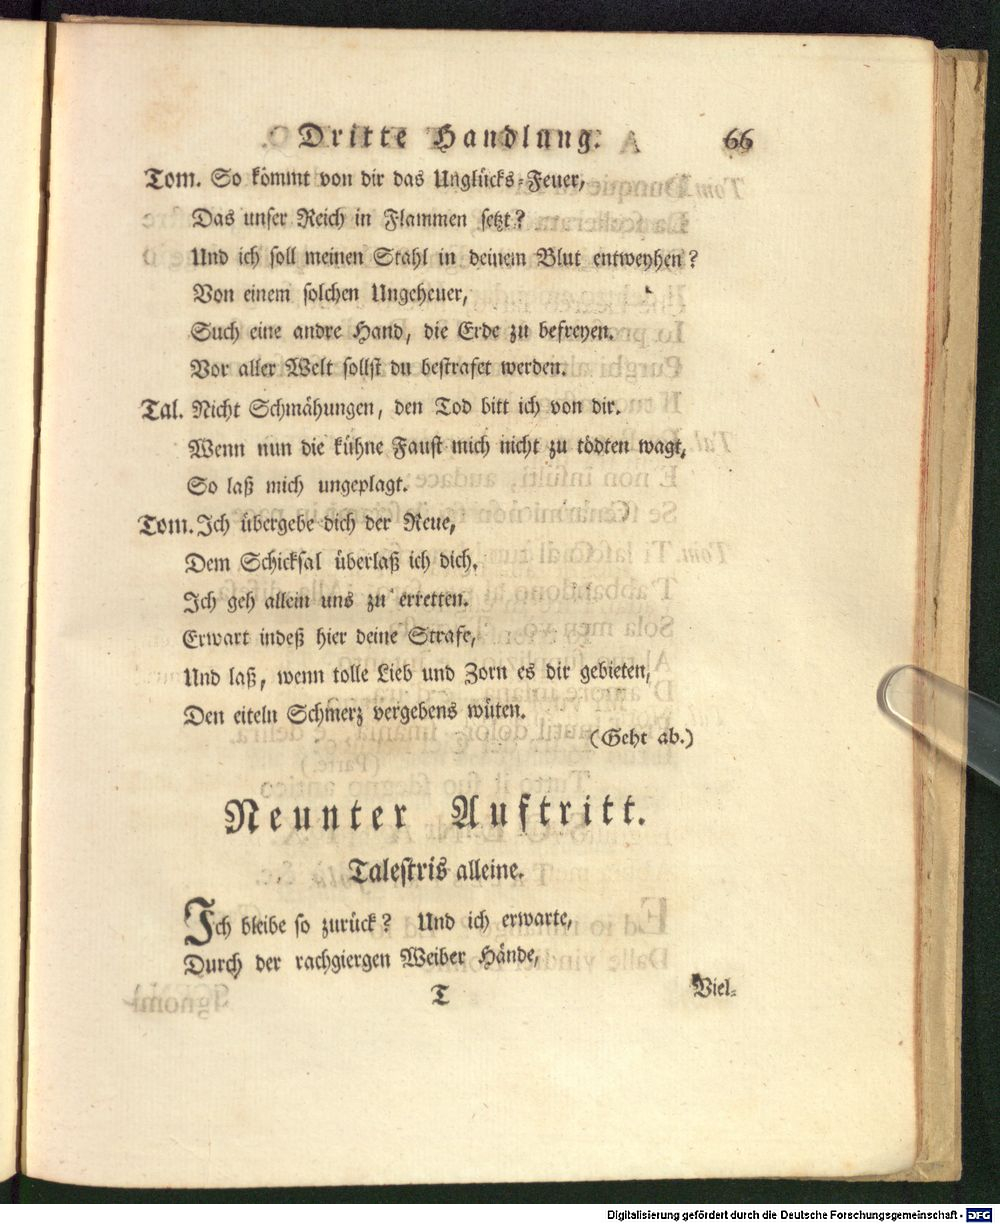 Dritte Handlung. 66
Tom. So kommt von dir das Unglücks-Feuer,
Das unser Reich in Flammen setzt?
Und ich soll meinen Stahl in deinem Blut entweyhen?
Von einem solchen Ungeheuer,
Such eine andre Hand, die Erde zu befreyen.
Vor aller Welt sollst du bestrafet werden.
Tal. Nicht Schmähungen, den Tod bitt ich von dir.
Wenn nun die kühne Faust mich nicht zu tödten wagt,
So laß mich ungeplagt.
Tom. Ich übergebe dich der Reue,
Dem Schicksal überlaß ich dich.
Ich geh allein uns zu erretten.
Erwart indeß hier deine Strafe,
Und laß, wenn tolle Lieb und Zorn es dir gebieten,
Den eiteln Schmerz vergebens wüten.
(Geht ab.)
Neunter Auftritt.
Talestris alleine.
Ich bleibe so zurück? Und ich erwarte,
Durch der rachgiergen Weiber Hände,
T Viel-
Digitalisierung gefördert durch die Deutsche Forschungsgemeinschaft - DFG